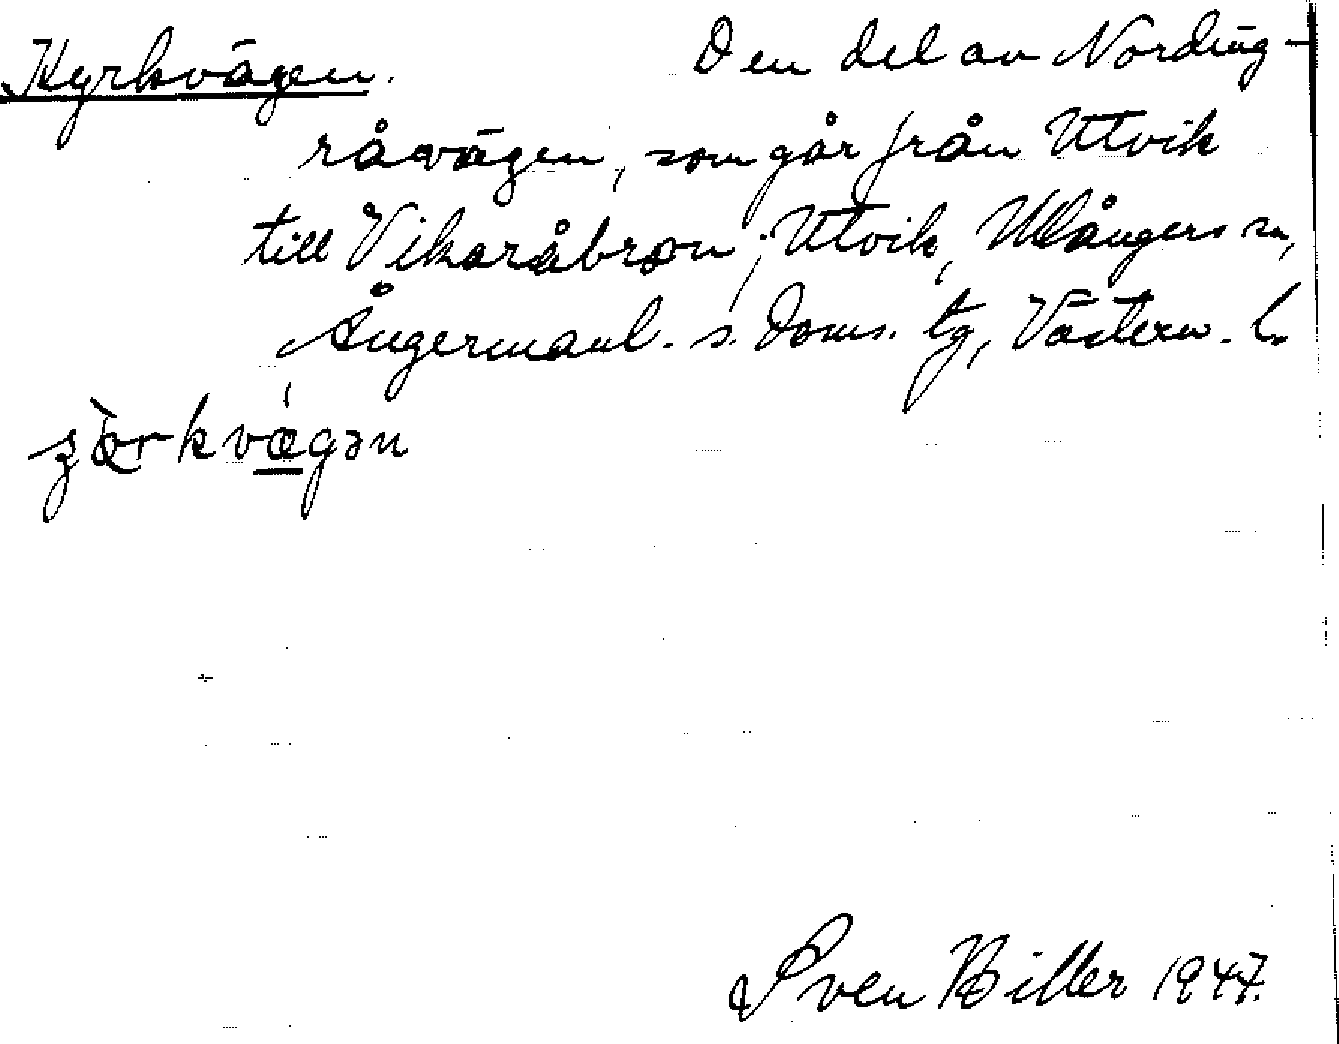 Kyrkvägen. Den del av Nording-
råvägen, som går från Utvik
till Vikaråbron; Utvik, Ullångers sn,
Ångermanl. s. doms. tg, Västern. l.
Sven Biller 1947.